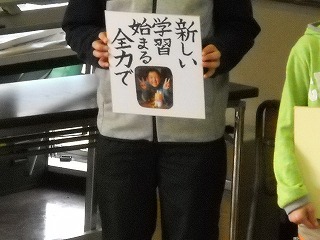 新しい
学習
始まる
全力で